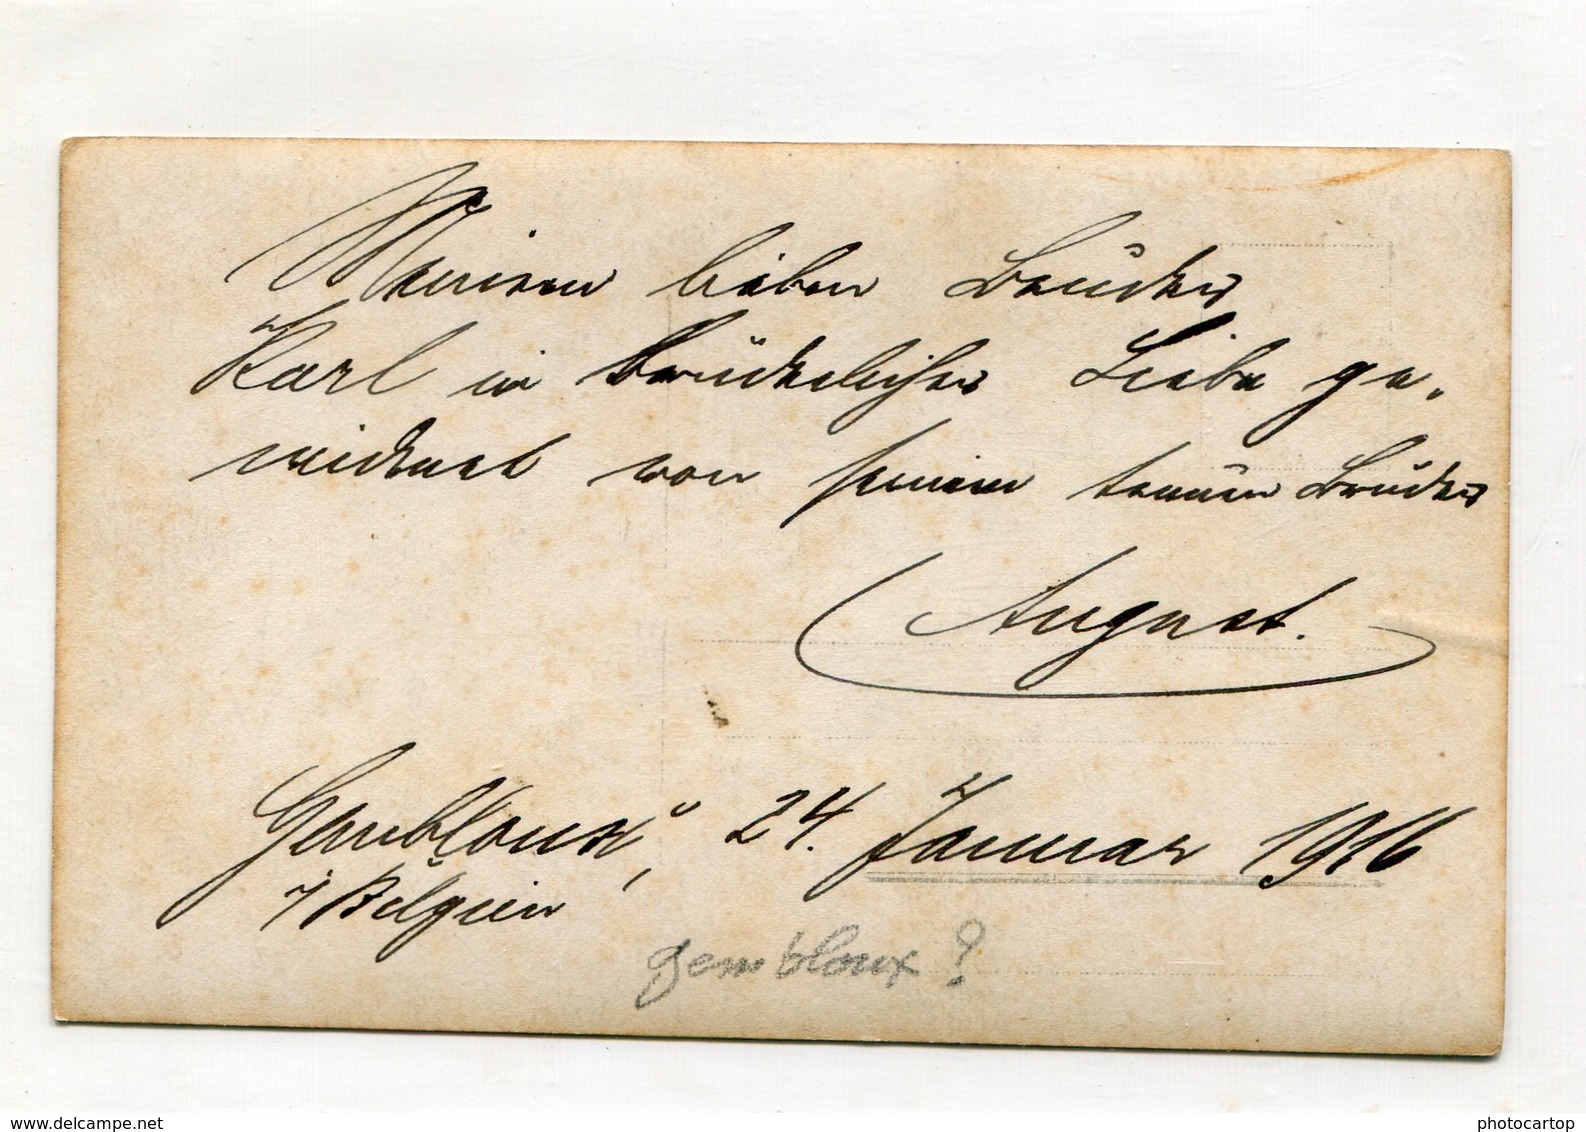 Meinem lieben Bruder
Karl in brüderlicher Liebe ge-
widmet von seinem treuen Bruder
August.
Gembloux, 24. Januar 1916
i/Belgien
gembloux?
photocartop